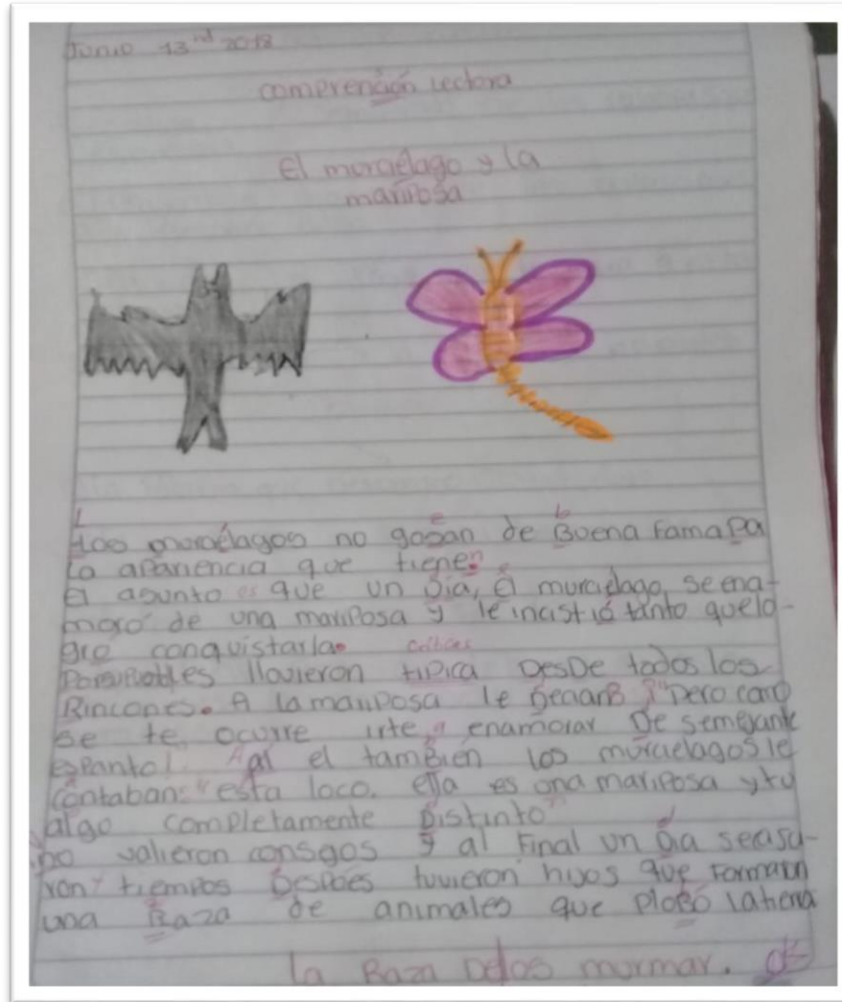 Junio 13rd 2018
comprención Lectora
El murciélago y la
mariposa
Los murciélagos no gosan de Buena Fama Pa
La apariencia que tienen
El asunto es que un Dia, el murcielago, se ena-
moro de una mariposa y le incistió tanto que lo-
gró conquistarla.
llovieron tipica DesDe todos los
Rincones. A la mariposa le "Pero como
se te ocurre irte a enamorar De semejante
espanto! Asi el tamBién los murcielagos le
Contaban: "esta loco. ella es una mariposa y tu
algo completamente Distinto"
no valieron consgos y al Final un dia se casa-
ron y tiempos Despúes tuvieron hijos que Formaron
una Raza de animales que PloBó la tierra
la Raza Delos murmar.